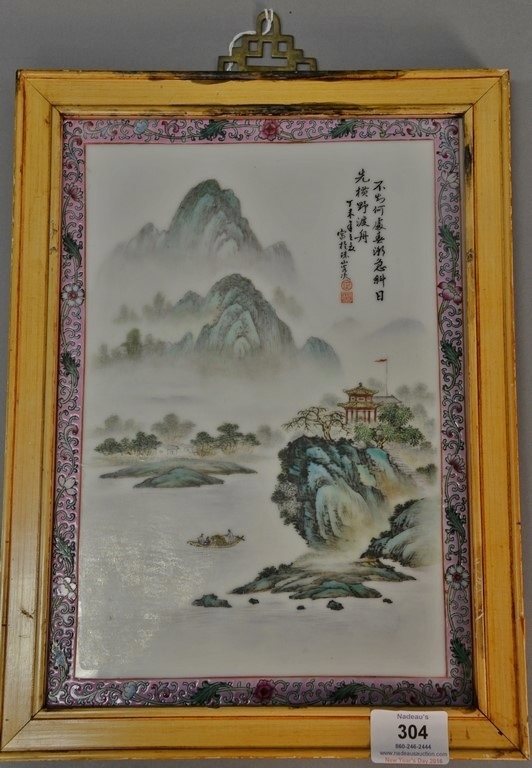 不知何處春潮急斜日
先横野渡舟
丁未年
Nadeau's
304
860-246-2444
www.nadeausauction.com
New Year's Day 2016